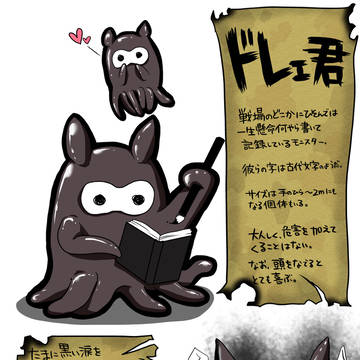 ドレェ君
戦場のどこかにひそんでは
一生懸命何やら書いて
記録しているモンスター。
彼らの字は古代文字のようだ。
サイズは手のひら〜2mにも
なる個体もいる。
大人しく、危害を加えて
くることはない。
なお、頭をなでると
とても喜ぶ。
たまに黒い涙を